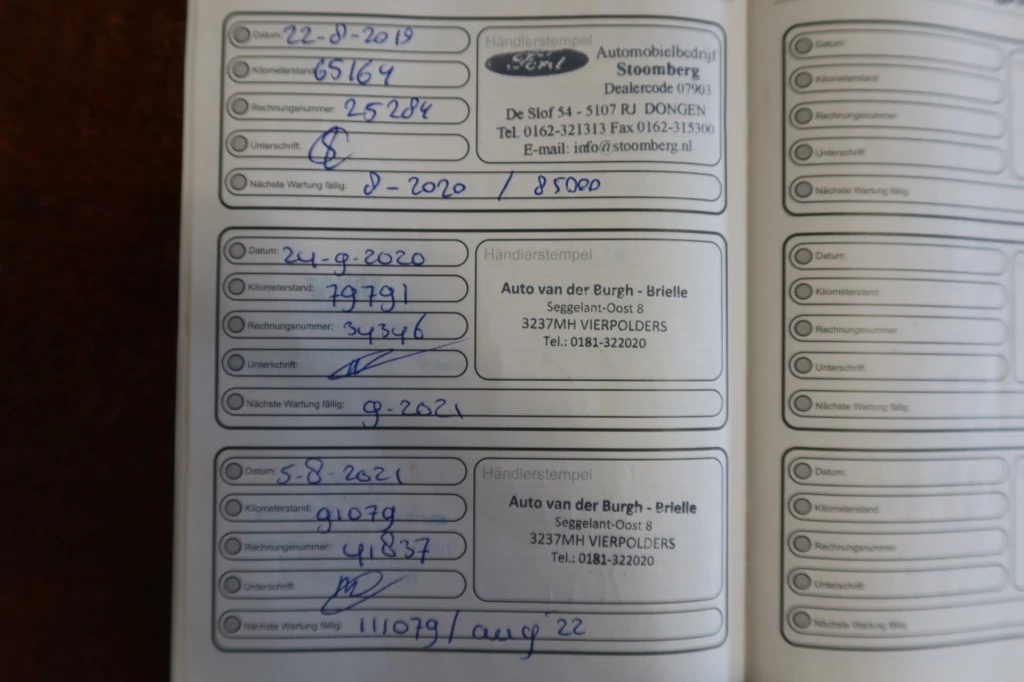 Datum: 22-8-2019
Kilometerstand: 65164
Rechnungsnummer: 25284
Unterschrift:
Nächste Wartung fällig: 8-2020 / 85000
Händlerstempel
Ford
Automobielbedrijf
Stoomberg
Dealercode 07903
De Slof 54 - 5107 RJ DONGEN
Tel. 0162-321313 Fax 0162-315300
E-mail: info@stoomberg.nl
Datum: 24-9-2020
Kilometerstand: 79791
Rechnungsnummer: 34346
Unterschrift:
Nächste Wartung fällig: 9-2021
Händlerstempel
Auto van der Burgh - Brielle
Seggelant-Oost 8
3237MH VIERPOLDERS
Tel.: 0181-322020
Datum: 5-8-2021
Kilometerstand: 91079
Rechnungsnummer: 41837
Unterschrift:
Nächste Wartung fällig: 111079 / aug '22
Händlerstempel
Auto van der Burgh - Brielle
Seggelant-Oost 8
3237MH VIERPOLDERS
Tel.: 0181-322020
Datum:
Kilometerstand:
Rechnungsnummer:
Unterschrift:
Nächste Wartung fällig:
Datum:
Kilometerstand:
Rechnungsnummer:
Unterschrift:
Nächste Wartung fällig:
Datum:
Kilometerstand:
Rechnungsnummer:
Unterschrift:
Nächste Wartung fällig: